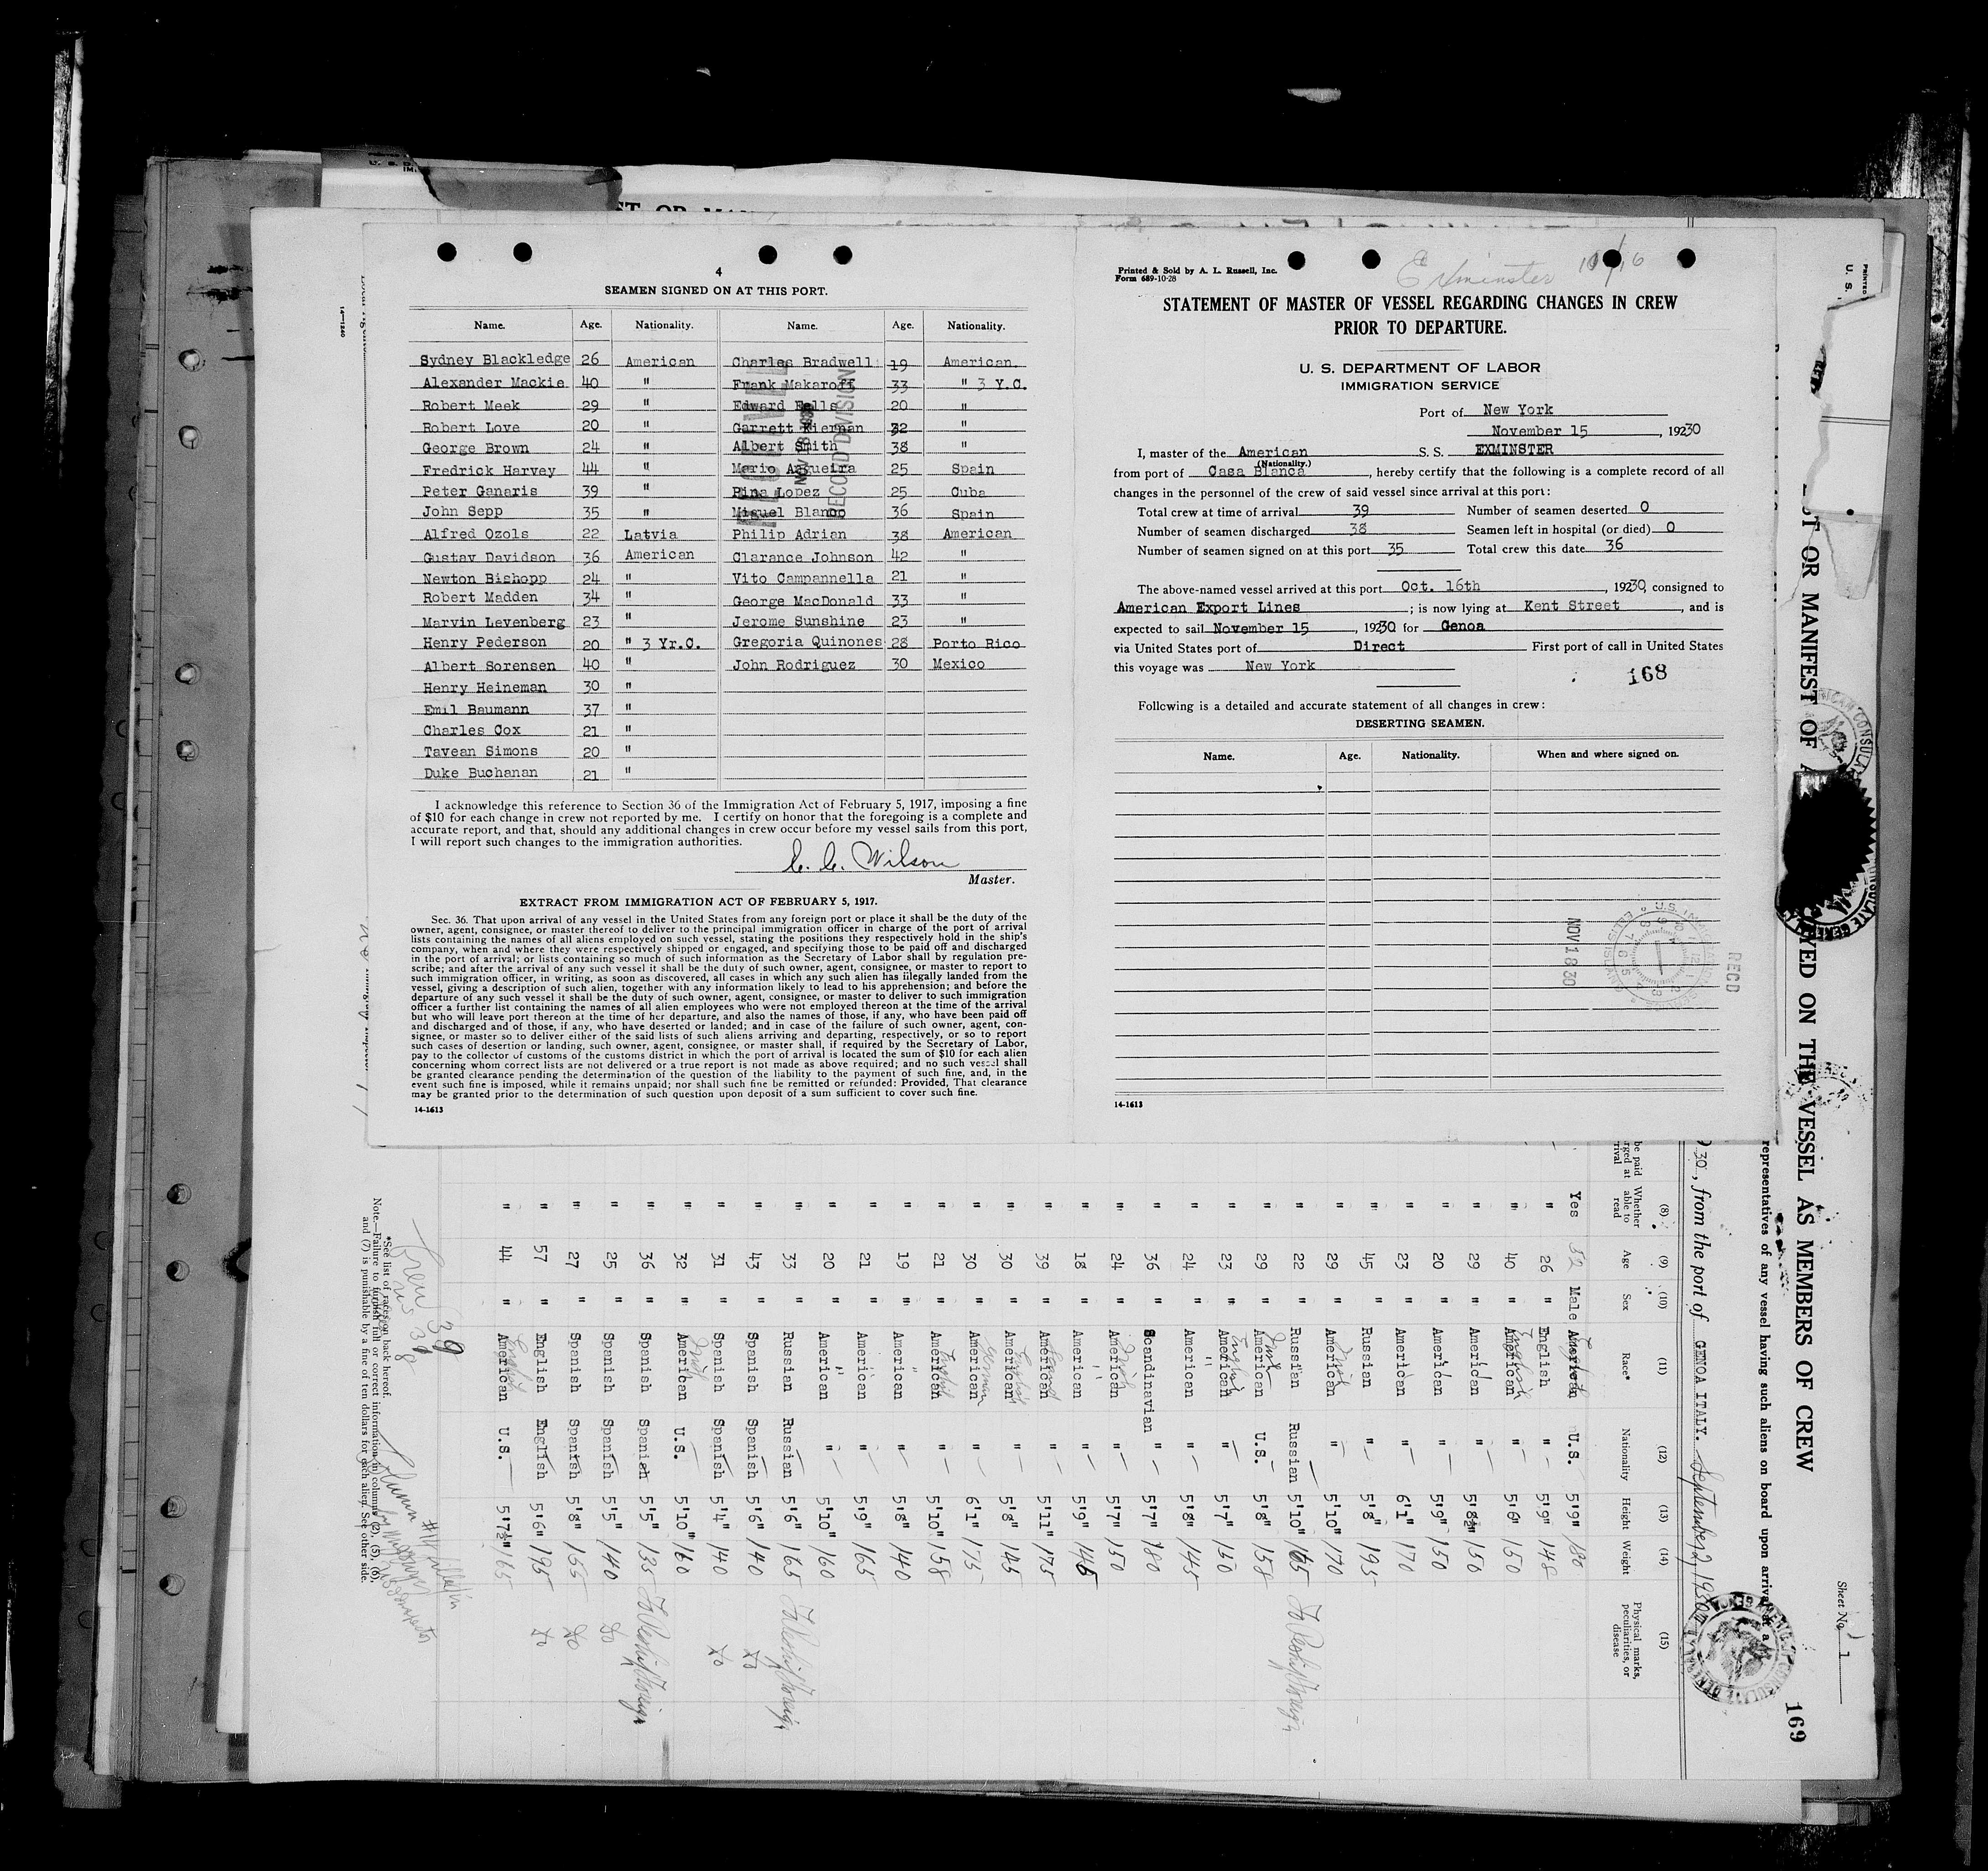 4
SEAMEN SIGNED ON AT THIS PORT.
Name. Age. Nationality. Name. Age. Nationality.
Sydney Blackledge 26 American Charles Bradwell 19 American.
Alexander Mackie 40 " Frank Makaroff 33 " 3 Y.C.
Robert Meek 29 " Edward Fells 20 "
Robert Love 20 " Garrett Kiernan 32 "
George Brown 24 " Albert Smith 38 "
Fredrick Harvey 44 " Mario Argueira 25 Spain
Peter Ganaris 39 " Pina Lopez 25 Cuba
John Sepp 35 " Miguel Blanco 36 Spain
Alfred Ozols 22 Latvia Philip Adrian 38 American
Gustav Davidson 36 American Clarance Johnson 42 "
Newton Bishopp 24 " Vito Campannella 21 "
Robert Madden 34 " George MacDonald 33 "
Marvin Levenberg 23 " Jerome Sunshine 23 "
Henry Pederson 20 " 3 Yr.C. Gregoria Quinones 28 Porto Rico
Albert Sorensen 40 " John Rodriguez 30 Mexico
Henry Heineman 30 "
Emil Baumann 37 "
Charles Cox 21 "
Tavean Simons 20 "
Duke Buchanan 21 "
RECORD DIVISION
I acknowledge this reference to Section 36 of the Immigration Act of February 5, 1917, imposing a fine
of $10 for each change in crew not reported by me. I certify on honor that the foregoing is a complete and
accurate report, and that, should any additional changes in crew occur before my vessel sails from this port,
I will report such changes to the immigration authorities.
C. C. Wilson
Master.
EXTRACT FROM IMMIGRATION ACT OF FEBRUARY 5, 1917.
Sec. 36. That upon arrival of any vessel in the United States from any foreign port or place it shall be the duty of the
owner, agent, consignee, or master thereof to deliver to the principal immigration officer in charge of the port of arrival
lists containing the names of all aliens employed on such vessel, stating the positions they respectively hold in the ship's
company, when and where they were respectively shipped or engaged, and specifying those to be paid off and discharged
in the port of arrival; or lists containing so much of such information as the Secretary of Labor shall by regulation pre-
scribe; and after the arrival of any such vessel it shall be the duty of such owner, agent, consignee, or master to report to
such immigration officer, in writing, as soon as discovered, all cases in which any such alien has illegally landed from the
vessel, giving a description of such alien, together with any information likely to lead to his apprehension; and before the
departure of any such vessel it shall be the duty of such owner, agent, consignee, or master to deliver to such immigration
officer a further list containing the names of all alien employees who were not employed thereon at the time of the arrival
but who will leave port thereon at the time of her departure, and also the names of those, if any, who have been paid off
and discharged and of those, if any, who have deserted or landed; and in case of the failure of such owner, agent, con-
signee, or master so to deliver either of the said lists of such aliens arriving and departing, respectively, or so to report
such cases of desertion or landing, such owner, agent, consignee, or master shall, if required by the Secretary of Labor,
pay to the collector of customs of the customs district in which the port of arrival is located the sum of $10 for each alien
concerning whom correct lists are not delivered or a true report is not made as above required; and no such vessel shall
be granted clearance pending the determination of the question of the liability to the payment of such fine, and, in the
event such fine is imposed, while it remains unpaid; nor shall such fine be remitted or refunded: Provided, That clearance
may be granted prior to the determination of such question upon deposit of a sum sufficient to cover such fine.
14-1613
Printed & Sold by A. L. Russell, Inc.
Form 689-10-28
Exminster 10/16
STATEMENT OF MASTER OF VESSEL REGARDING CHANGES IN CREW
PRIOR TO DEPARTURE.
U. S. DEPARTMENT OF LABOR
IMMIGRATION SERVICE
Port of New York
November 15, 19230
I, master of the American S. S. EXMINSTER
(Nationality.)
from port of Casa Blanca, hereby certify that the following is a complete record of all
changes in the personnel of the crew of said vessel since arrival at this port:
Total crew at time of arrival 39 Number of seamen deserted 0
Number of seamen discharged 38 Seamen left in hospital (or died) 0
Number of seamen signed on at this port 35 Total crew this date 36
The above-named vessel arrived at this port Oct. 16th, 19230, consigned to
American Export Lines; is now lying at Kent Street, and is
expected to sail November 15, 19230 for Genoa
via United States port of Direct First port of call in United States
this voyage was New York
168
Following is a detailed and accurate statement of all changes in crew:
DESERTING SEAMEN.
Name. Age. Nationality. When and where signed on.
NOV 18 30
RECD
14-1613
Sheet No. 1
169
ST OR MANIFEST OF
YED ON THE VESSEL AS MEMBERS OF CREW
representatives of any vessel having such aliens on board upon arrival at a
30, from the port of GENOA ITALY. September 2, 1930
(8) (9) (10) (11) (12) (13) (14) (15)
Whether able to read Age Sex Race* Nationality Height Weight Physical marks, peculiarities, or disease
Yes 52 Male American U.S. 5'9" 180
" 26 " English " 5'9" 148
" 40 " American English " 5'6" 150
" 29 " American " 5'8½" 150
" 20 " American " 5'9" 150
" 23 " American " 6'1" 170
" 45 " Russian " 5'8" 195
" 29 " American " 5'10" 170
" 22 " Russian Russian 5'10" 165
" 29 " American U.S. 5'8" 158
" 23 " American English " 5'7" 150
" 24 " American " 5'8" 145
" 36 " Scandinavian " 5'7" 180
" 24 " American " 5'7" 150
" 18 " American " 5'9" 145
" 39 " American " 5'11" 175
" 30 " American English " 5'8" 145
" 30 " American German " 6'1" 175
" 21 " American English " 5'10" 158
" 19 " American " 5'8" 140
" 21 " American " 5'9" 165
" 20 " American " 5'10" 160
" 33 " Russian Russian 5'6" 165
" 43 " Spanish Spanish 5'6" 140 Do
" 31 " Spanish Spanish 5'4" 140 Do
" 32 " American U.S. 5'10" 160
" 36 " Spanish Spanish 5'5" 135
" 25 " Spanish Spanish 5'5" 140 Do
" 27 " Spanish Spanish 5'8" 155 Do
" 57 " English English 5'6" 195 Do
" 44 " American English U.S. 5'7½" 165
Crew 39
*See list of races on back hereof.
Note.—Failure to furnish full or correct information in columns (2), (5), (6),
and (7) is punishable by a fine of ten dollars for each alien. See other side.